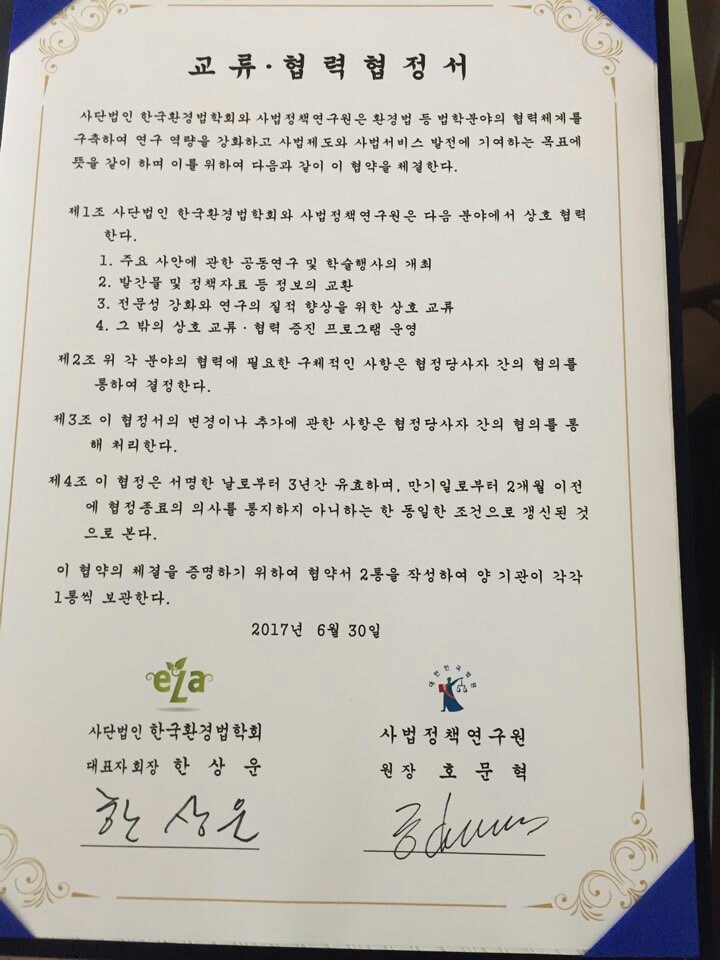 교류·협력협정서
사단법인 한국환경법학회와 사법정책연구원은 환경법 등 법학분야의 협력체계를
구축하여 연구 역량을 강화하고 사법제도와 사법서비스 발전에 기여하는 목표에
뜻을 같이 하며 이를 위하여 다음과 같이 이 협약을 체결한다.
제1조 사단법인 한국환경법학회와 사법정책연구원은 다음 분야에서 상호 협력
한다.
1. 주요 사안에 관한 공동연구 및 학술행사의 개최
2. 발간물 및 정책자료 등 정보의 교환
3. 전문성 강화와 연구의 질적 향상을 위한 상호 교류
4. 그 밖의 상호 교류·협력 증진 프로그램 운영
제2조 위 각 분야의 협력에 필요한 구체적인 사항은 협정당사자 간의 협의를
통하여 결정한다.
제3조 이 협정서의 변경이나 추가에 관한 사항은 협정당사자 간의 협의를 통
해 처리한다.
제4조 이 협정은 서명한 날로부터 3년간 유효하며, 만기일로부터 2개월 이전
에 협정종료의 의사를 통지하지 아니하는 한 동일한 조건으로 갱신된 것
으로 본다.
이 협약의 체결을 증명하기 위하여 협약서 2통을 작성하여 양 기관이 각각
1통씩 보관한다.
2017년 6월 30일
eLa
사단법인 한국환경법학회
대표자회장 한상운
한상운
대한민국법원
사법정책연구원
원장 호문혁